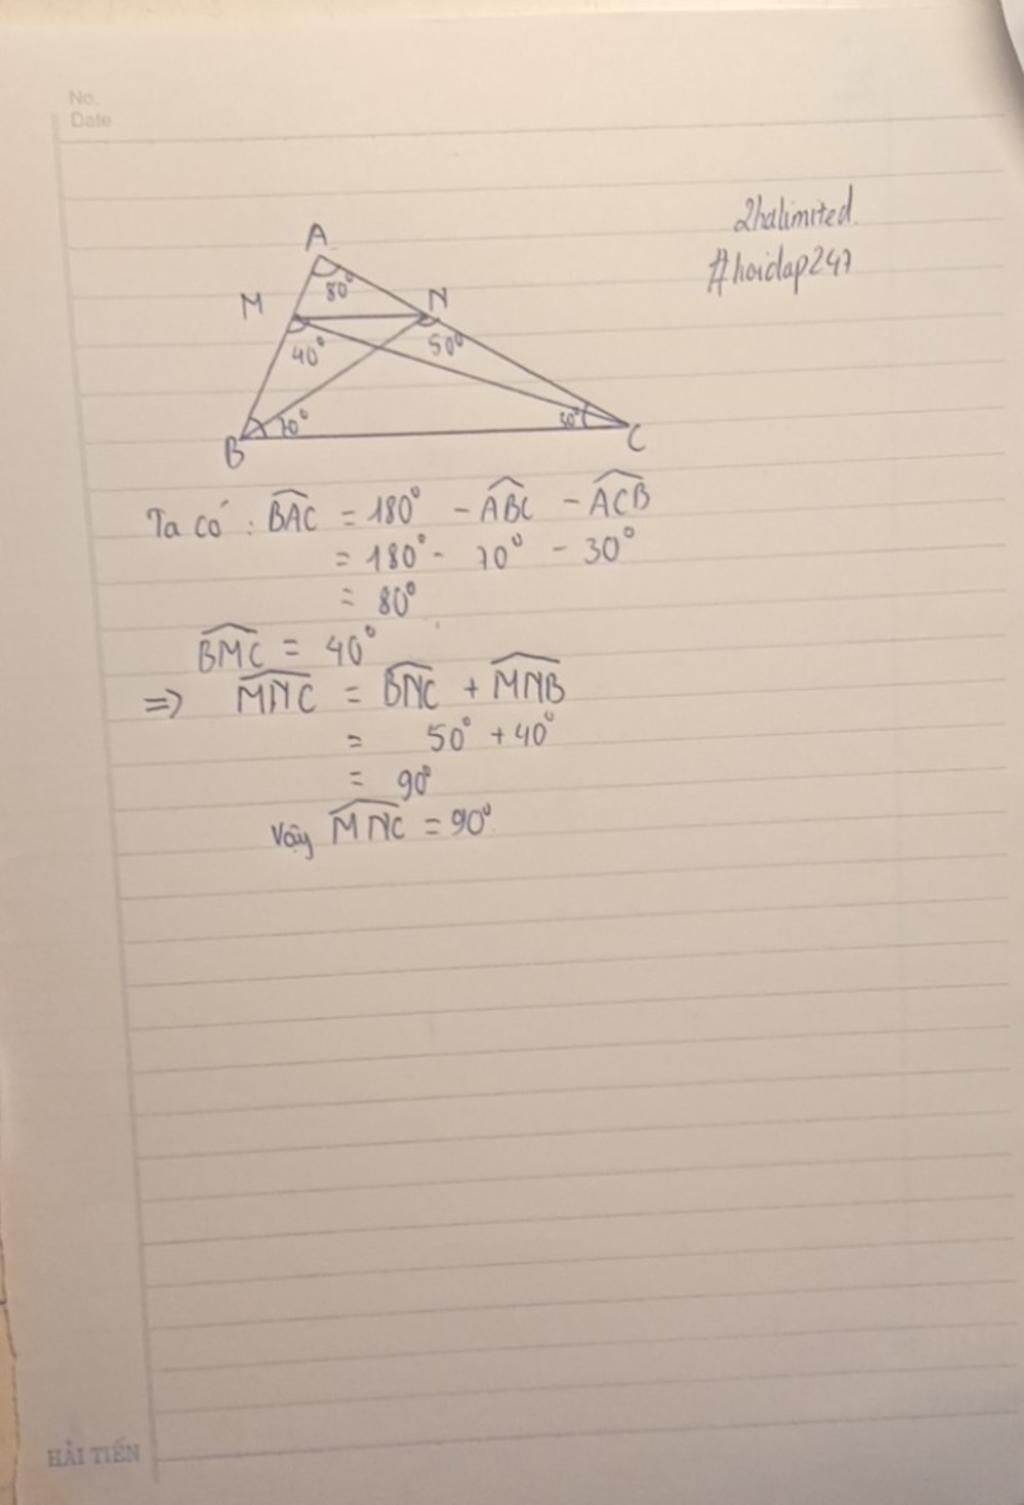 No.
Date
2halimited.
#hoidap247
A
80°
M
N
40°
50°
70°
30°
B
C
Ta có: BAC = 180° - ABC - ACB
= 180° - 70° - 30°
= 80°
BMC = 40°
=> MNC = BNC + MNB
= 50° + 40°
= 90°
Vậy MNC = 90°
HẢI TIẾN